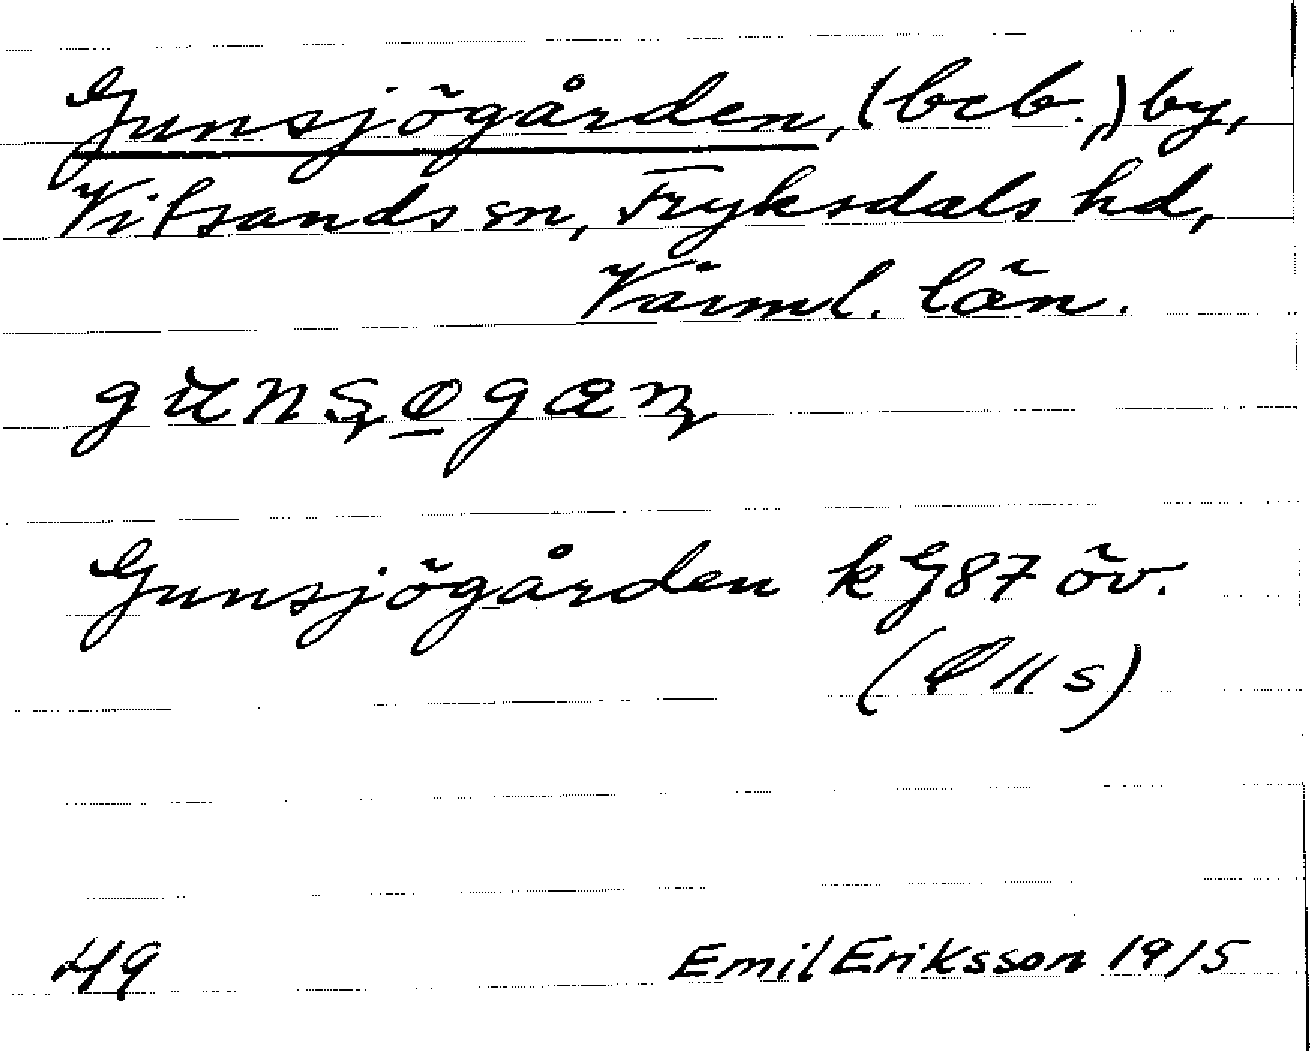 Gunsjögården, (beb.,) by,
Vitsands sn, Fryksdals hd,
Värml. län.
Gunsjögården k G87 öv.
49 Emil Eriksson 1915